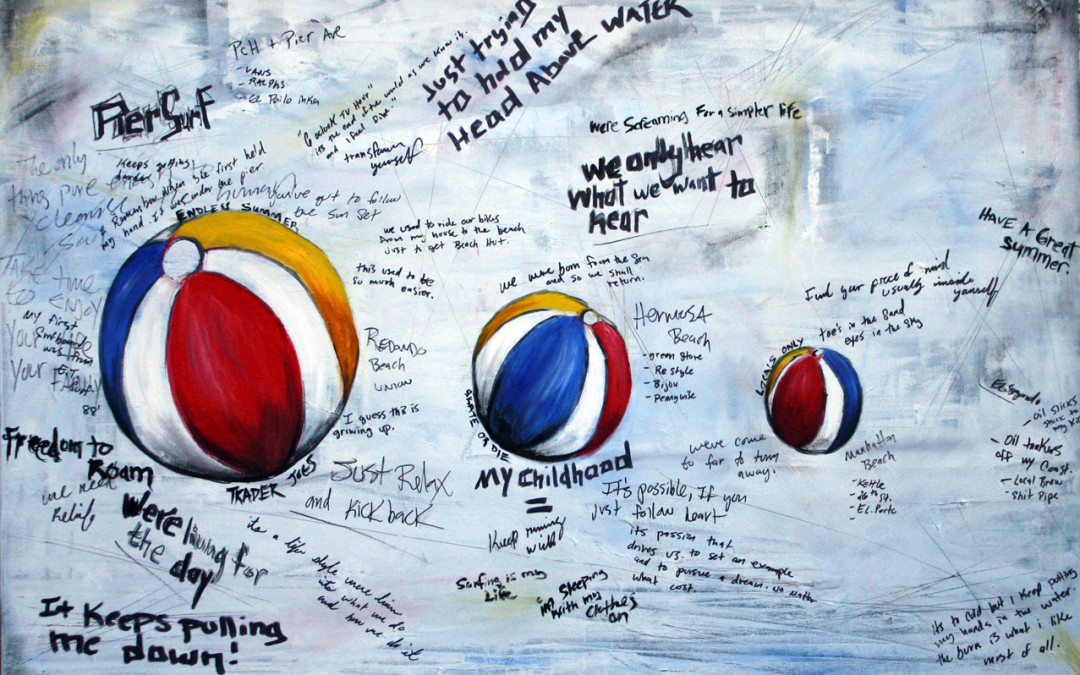 PCH + Pier Ave
- VANS
- RALPHS
- El Pollo inka
Pier Surf
"6 oclock TV Hour"
its the end of the world as we know it.
transform
yourself
Just trying
to hold my
Head Above WATER
we're Screaming For a simpler life
we only hear
What we want to
hear
HAVE A Great
Summer
The only
thing pure
cleanse
Soul
Keeps getting
I Remember when she first held
my hand. It was under the pier
you've got to follow
the Sun Set
ENDLESS SUMMER
we used to ride our bikes
Down my house to the beach
just to get Beach Hut.
this used to be
so much easier.
we were born from the Sea
and so we shall
return.
Find your piece of mind
usually inside
yourself
toe's in the Sand
eyes in the sky
TAKE time
to ENJOY
Your
Your FAMILY
my first
Surfboard
was from
E.T.
Surf
88'
Redondo
Beach
union
I guess this is
growing up.
Hermosa
Beach
- green Store
- Re style
- Bijou
- Pennywise
SKATE OR DIE
LOCALS ONLY
El Segundo
- Oil slicks
stuck to
my
- Oil tankers
off my Coast.
- Local Brew
- Shit Pipe
Manhattan
Beach
- Kettle
- 26th St.
- EL. Porto
Freedom to
Roam
we need
Relief
TRADER JOES
Just Relax
and Kick back
My Childhood
=
Keep running
wild
Surfing is my
Life
I'm sleeping
with my
Clothes
on
we've come
to far to turn
away.
It's possible, If you
just follow heart
its passion that
drives us. to set an example
and to pursue a dream. no matter
what cost.
We're living for
the day
its a life style, were livin
its what we do
and how we do it
It Keeps pulling
me down!
its to cold but I keep putting
my hands in the water.
the burn is what i like
most of all.